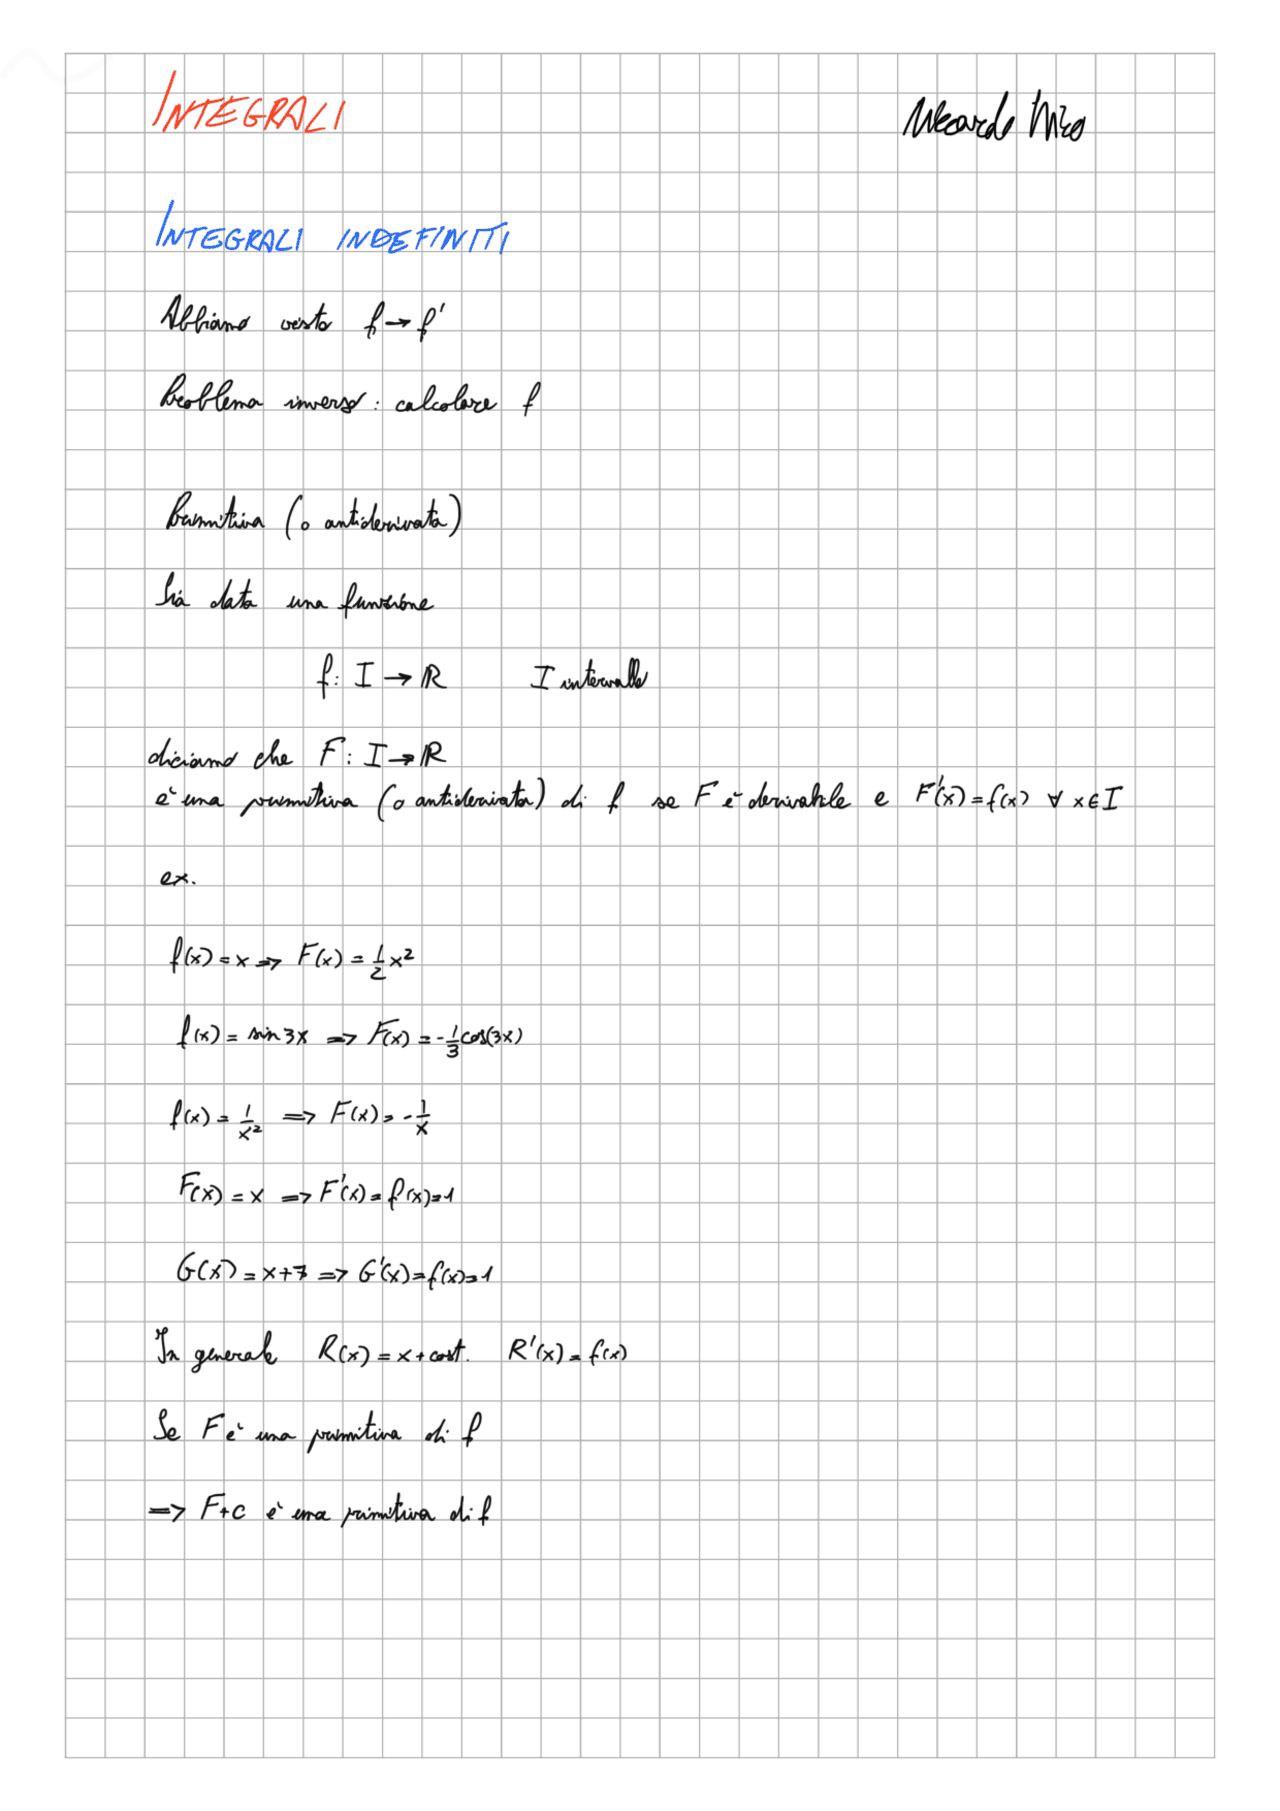 INTEGRALI
INTEGRALI INDEFINITI
Abbiamo visto f → f'
Problema inverso : calcolare f
Primitiva (o antiderivata)
Sia data una funzione
f: I → ℝ I intervallo
diciamo che F: I → ℝ
è una primitiva (o antiderivata) di f se F è derivabile e F'(x) = f(x) ∀ x ∈ I
ex.
f(x) = x => F(x) = 1/2 x²
f(x) = sin 3x => F(x) = -1/3 cos(3x)
f(x) = 1/x² => F(x) = -1/x
F(x) = x => F'(x) = f(x) = 1
G(x) = x+7 => G'(x) = f(x) = 1
In generale R(x) = x + cost. R'(x) = f(x)
Se F è una primitiva di f
=> F+c è una primitiva di f